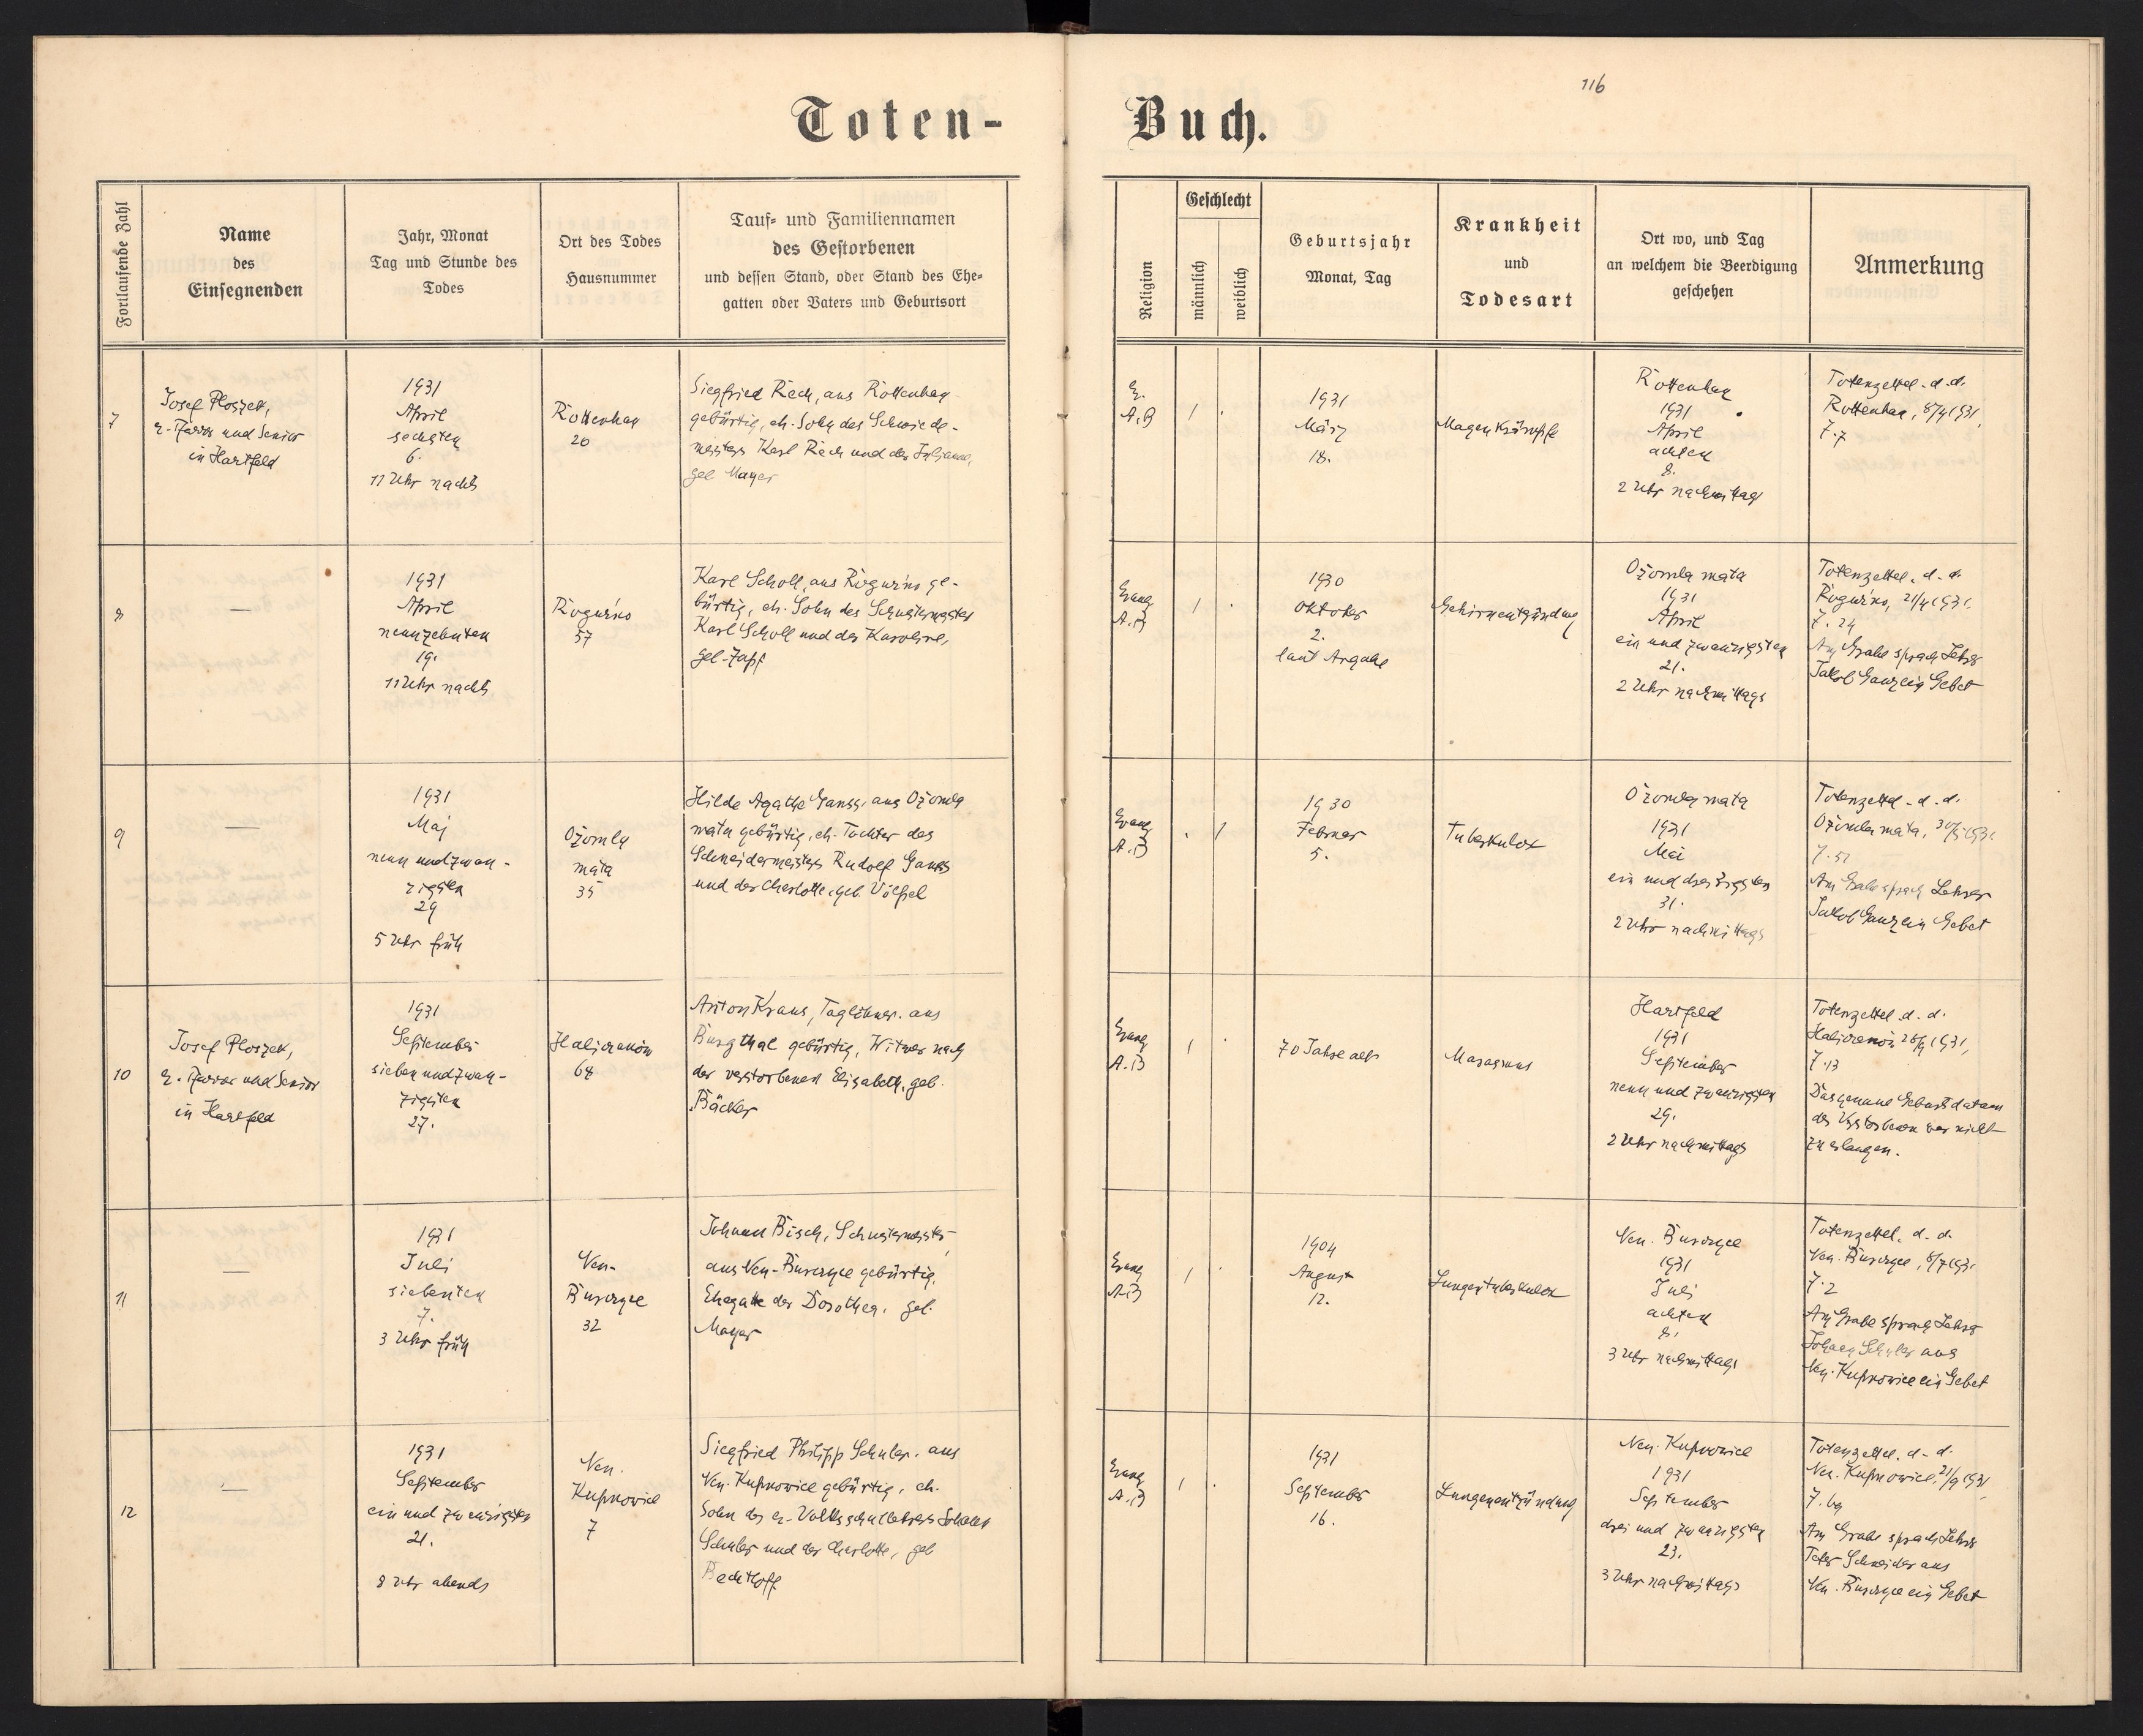 116
Toten-
Buch.
Fortlaufende Zahl
Name
des
Einsegnenden
Jahr, Monat
Tag und Stunde des
Todes
Ort des Todes
Hausnummer
Tauf- und Familiennamen
des Gestorbenen
und dessen Stand, oder Stand des Ehe-
gatten oder Vaters und Geburtsort
Religion
Geschlecht
männlich
weiblich
Geburtsjahr
Monat, Tag
Krankheit
und
Todesart
Ort wo, und Tag
an welchem die Beerdigung
geschehen
Anmerkung
7
Josef Ploszek,
e. Pfarrer und Senior
in Hartfeld
1931
April
sechsten
6.
11 Uhr nachts
Rottenhan
20
Siegfried Rech, aus Rottenhan
gebürtig, eh. Sohn des Schmiede-
meisters Karl Rech und der Juliane,
geb. Mayer
E.
A.B
1
1931
März
18.
Magenkrämpfe
Rottenhan
1931
April
achten
8.
2 Uhr nachmittags
Totenzettel d. d.
Rottenhan, 8/4 1931,
Z. 7
8
—
1931
April
neunzehnten
19.
11 Uhr nachts
Roguźno
57
Karl Scholl, aus Roguźno ge-
bürtig, eh. Sohn des Schustermeisters
Karl Scholl und der Karoline,
geb. Zapf
Evang
A.B
1
1930
Oktober
2.
laut Angabe
Gehirnentzündung
Ożomla mała
1931
April
ein und zwanzigsten
21.
2 Uhr nachmittags
Totenzettel d. d.
Roguźno, 21/4 1931.
Z. 24
Am Grabe sprach Lehrer
Jakob Ganz ein Gebet
9
—
1931
Maj
neun und zwan-
zigsten
29
5 Uhr früh
Ożomla
mała
35
Hilde Agathe Ganss, aus Ożomla
mała gebürtig, eh. Tochter des
Schneidermeisters Rudolf Ganss
und der Charlotte, geb. Völpel
Evang
A.B
1
1930
Februar
5.
Tuberkulose
Ożomla mała
1931
Mai
ein und dreizigsten
31.
2 Uhr nachmittags
Totenzettel d. d.
Ożomla mała, 31/5 1931.
Z. 51
Am Grabe sprach Lehrer
Jakob Ganz ein Gebet
10
Josef Ploszek,
e. Pfarrer und Senior
in Hartfeld
1931
September
sieben und zwan-
zigsten
27.
Haliczanów
64
Anton Kraus, Taglöhner, aus
Burgthal gebürtig, Witwer nach
der verstorbenen Elisabeth, geb.
Bäcker
Evang
A.B
1
70 Jahre alt
Marasmus
Hartfeld
1931
September
neun und zwanzigsten
29.
2 Uhr nachmittags
Totenzettel d. d.
Haliczanów 28/9 1931,
Z. 13
Das genaue Geburtsdatum
des Verstorbenen war nicht
zu erlangen.
11
—
1931
Juli
siebenten
7.
3 Uhr früh
Neu-
Bruszyce
32
Johann Bisch, Schustermeister,
aus Neu-Bruszyce gebürtig,
Ehegatte der Dorothea, geb.
Mayer
Evang
A.B
1
1904
August
12.
Lungentuberkulose
Neu-
1931
Juli
achten
8.
3 Uhr nachmittags
Totenzettel d. d.
8/7 1931
Z. 2
Am Grabe sprach Lehrer
Johann Schuler aus
Neu-Kupnowice ein Gebet
12
—
1931
September
ein und zwanzigsten
21.
8 Uhr abends
Neu-
Kupnowice
7
Siegfried Philipp Schuler, aus
Neu-Kupnowice gebürtig, eh.
Sohn des ev. Volksschullehrers Johann
Schuler und der Charlotte, geb
Bechtloff
Evang
A.B
1
1931
September
16.
Lungenentzündung
Neu-Kupnowice
1931
September
drei und zwanzigsten
23.
3 Uhr nachmittags
Totenzettel d. d.
Neu-Kupnowice, 21/9 1931
Z. 69
Am Grabe sprach Lehrer
Peter Schneider aus
ein Gebet